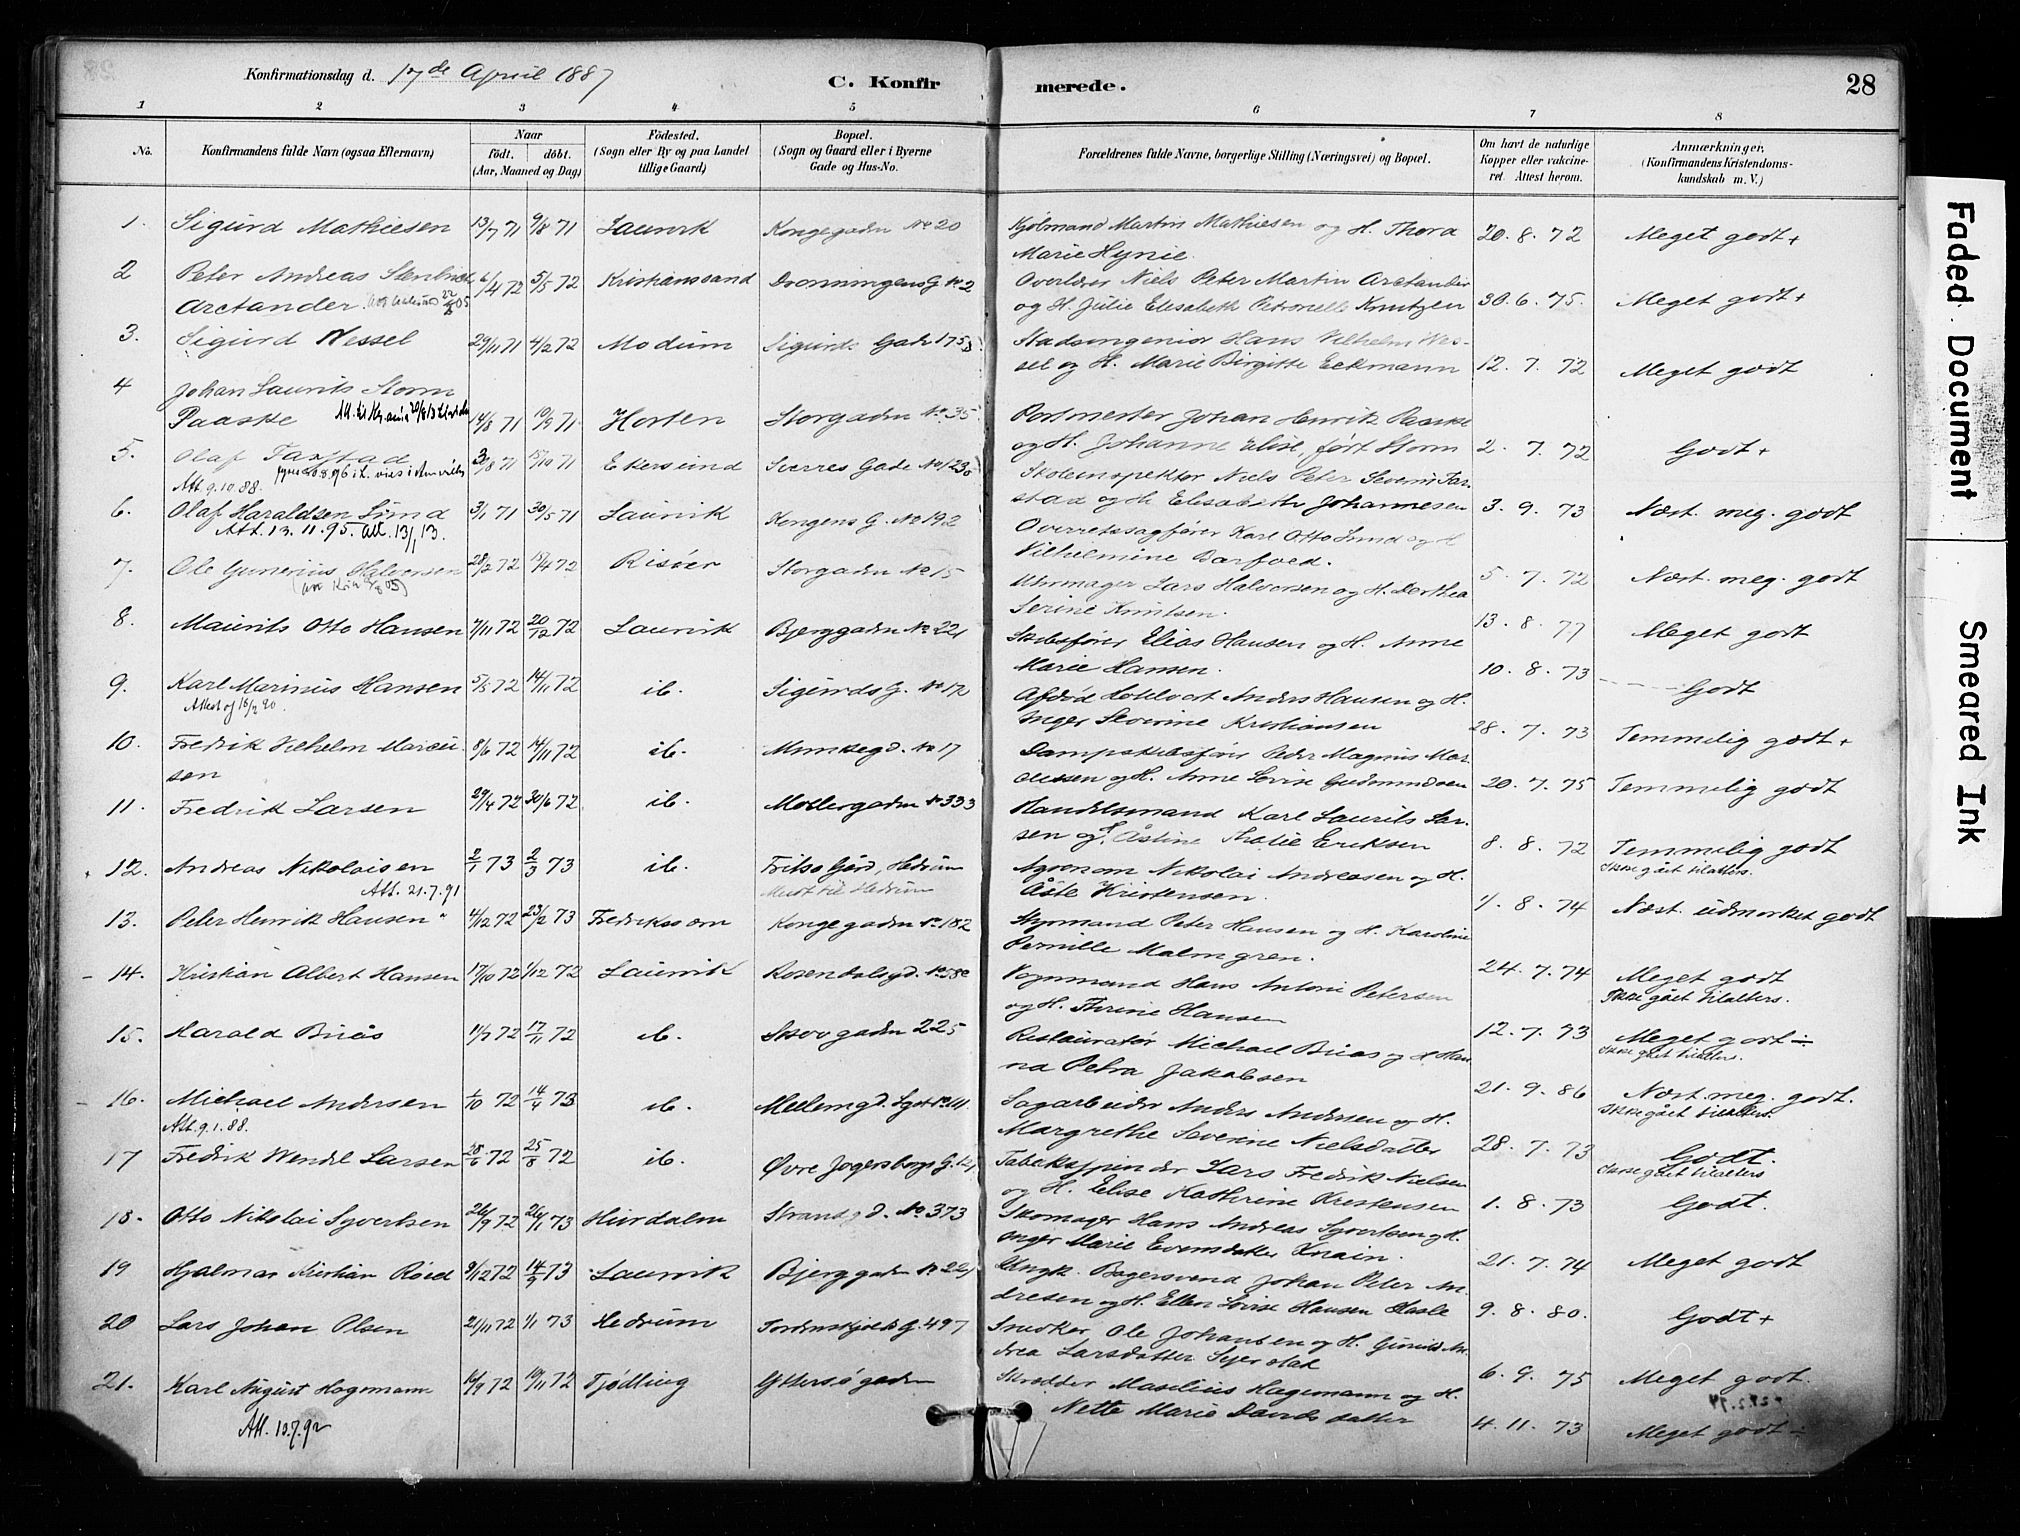 Konfirmationsdag d. 17de April 1887
C. Konfirmerede.
28
1 2 3 4 5 6 7 8
No.
Konfirmandens fulde Navn (ogsaa Efternavn)
Naar
födt. döbt.
(Aar, Maaned og Dag)
Födested.
(Sogn eller By og paa Landet
tillige Gaard)
Bopæl.
(Sogn og Gaard eller i Byerne
Gade og Hus-No.
Forældrenes fulde Navne, borgerlige Stilling (Næringsvei) og Bopæl.
Om havt de naturlige
Kopper eller vakcineret. Attest herom.
Anmærkninger,
(Konfirmandens Kristendoms-
kundskab m. V.)
1. Sigurd Mathiesen 13/7 71 9/8 71 Laurvik Kongegaden No 20 Kjølmand Martin Mathiesen og H. Thora
Marie Hynie. 20. 8. 72 Meget godt +
2 Peter Andreas
Arctander 6/4 72 5/5 72 Kristianssand Dronningens G. No 2 Niels Peter Martin Arctander
og H. Julie Elisabeth Petronelle Knutzen 30. 6. 75. Meget godt +
3. Sigurd Wessel 29/11 71 4/2 72 Modum Sigurds Gade 175 Stadsingeniør Hans Vilhelm Wes-
sel og H. Marie Birgitte Eckmann 12. 7. 72 Meget godt
4 Johan Laurits Storm
Paaske 14/8 71 10/9 71 Horten Storgaden No. 35 Postmester Johan Henrik Paaske
og H. Johanne Elise, født Storm 2. 7. 72 Godt +
5. Olaf Tarstad 15/10 71 Ekersund Sverres Gade No 123 Skoleinspektør Niels Peter Severin Tar-
stad og H. Elisabeth Johannesen 3. 9. 73 Næst. meg. godt
Att. 9.10.88.
6. Olaf Haraldsen Lund 3/1 71 30/5 71 Laurvik Kongens G. No 192 Overretssagfører Karl Otto Lund og H
Vilhelmine Barfoed. 5. 7. 72 Næst. meg. godt
Att. 13. 11. 95. Att. 13/1 13.
7. Ole Gunerius Halvorsen 28/2 72 15/4 72 Risøer Storgaden No 15 Uhrmager Lars Halvorsen og H. Dorthea
Serine Knutsen. 13. 8. 77 Meget godt
8. Maurits Otto Hansen 7/11 72 20/12 72 Laurvik Bjerggaden No 221 Skibsfører Elias Hansen og H. Anne
Marie Hansen. 10. 8. 73 Godt
9. Karl Marinus Hansen 5/5 72 14/11 72 ib. Sigurds G. No 12 Afdød Anders Hansen og H.
Inger Severine Kristiansen 28. 7. 73 Temmelig godt +
Attest og 16/2 90.
10. Fredrik Vilhelm Marcu
sen 8/6 72 14/11 72 ib. Munkegd. No 17 Dampskibsfører Peder Magnus Mar-
cussen og H. Anne Lovise Gudmundsen 20. 7. 75 Temmelig godt
11. Fredrik Larsen 29/4 72 30/6 72 ib. Møllergaden No 333 Handelsmand Karl Laurits Lar-
sen og H. Åstine Thalie Eriksen 8. 8. 72 Temmelig godt
Ikke gået tilalters.
12. Andreas Nikolaisen 2/1 73 2/3 73 ib. Fritsø Gård, Hedrum
Meldt til Hedrum Agronom Nikolai Andreasen og H.
Åste Kristensen. 1. 8. 74 Næst. udmerket godt
Att. 21.7.91
13. Peter Henrik Hansen 4/12 72 23/2 73 Fredriksværn Kongegaden No 182 Styrmand Peter Hansen og H. Karoline
Pernille Malmgren. 24. 7. 74 Meget godt
Ikke gået tilalters.
14. Kristian Albert Hansen 17/10 72 1/12 72 Laurvik Rosendalsgd. No 58 Vognmand Hans Anton Petersen
og H. Thrine Hansen 12. 7. 73 Meget godt ÷
Ikke gået tilalters.
15. Harald Buås 11/7 72 17/11 72 ib. Skovgaden 225 Restauratør Michael Buås og H Han-
na Petra Jakobsen 21. 9. 86 Næst. meg. godt.
Ikke gået tilalters.
16. Michael Andersen 1/10 72 14/4 73 ib. Mellemgd. Sagarbeider Anders Andersen og H.
Margrethe Severine Nielsdatter 28. 7. 73 Godt.
Ikke gået tilalters
Att. 9. 1. 88.
17 Fredrik Wendel Larsen 28/6 72 25/8 72 ib. Øvre Jegersborgs G. Tobakspinder Lars Fredrik Nielsen
og H. Elise Kathrine Kristensen 1. 8. 73 Godt.
18. Otto Nikolai Syvertsen 26/9 72 26/1 73 Hurdalen Strandgd. No 373 Skomager Hans Andreas Syvertsen og H.
Inger Marie Evensdatter Knain. 21. 7. 74 Meget godt
19 Hjalmar Kristian Røed 9/12 72 14/9 73 Laurvik Bjerggaden No 221 Ungk. Bagersvend Johan Peter An-
dresen og H. Ellen Lovise Hansen Hasle 9. 8. 80. Godt +
20 Lars Johan Olsen 21/11 72 1/1 73 Hedrum Tordenskjolds G. 497 Snedker Ole Johansen og H. Gunild An-
drea Larsdatter Sejerstad 6. 9. 75 Meget godt.
21. Karl August Hagemann 16/9 72 10/11 72 Tjødling Yttersøgaden Skrædder Maselius Hagemann og H.
Nette Marie Davidsdatter 4. 11. 73 Meget godt ÷
Att. 10.7.92
Faded Document
Smeared Ink